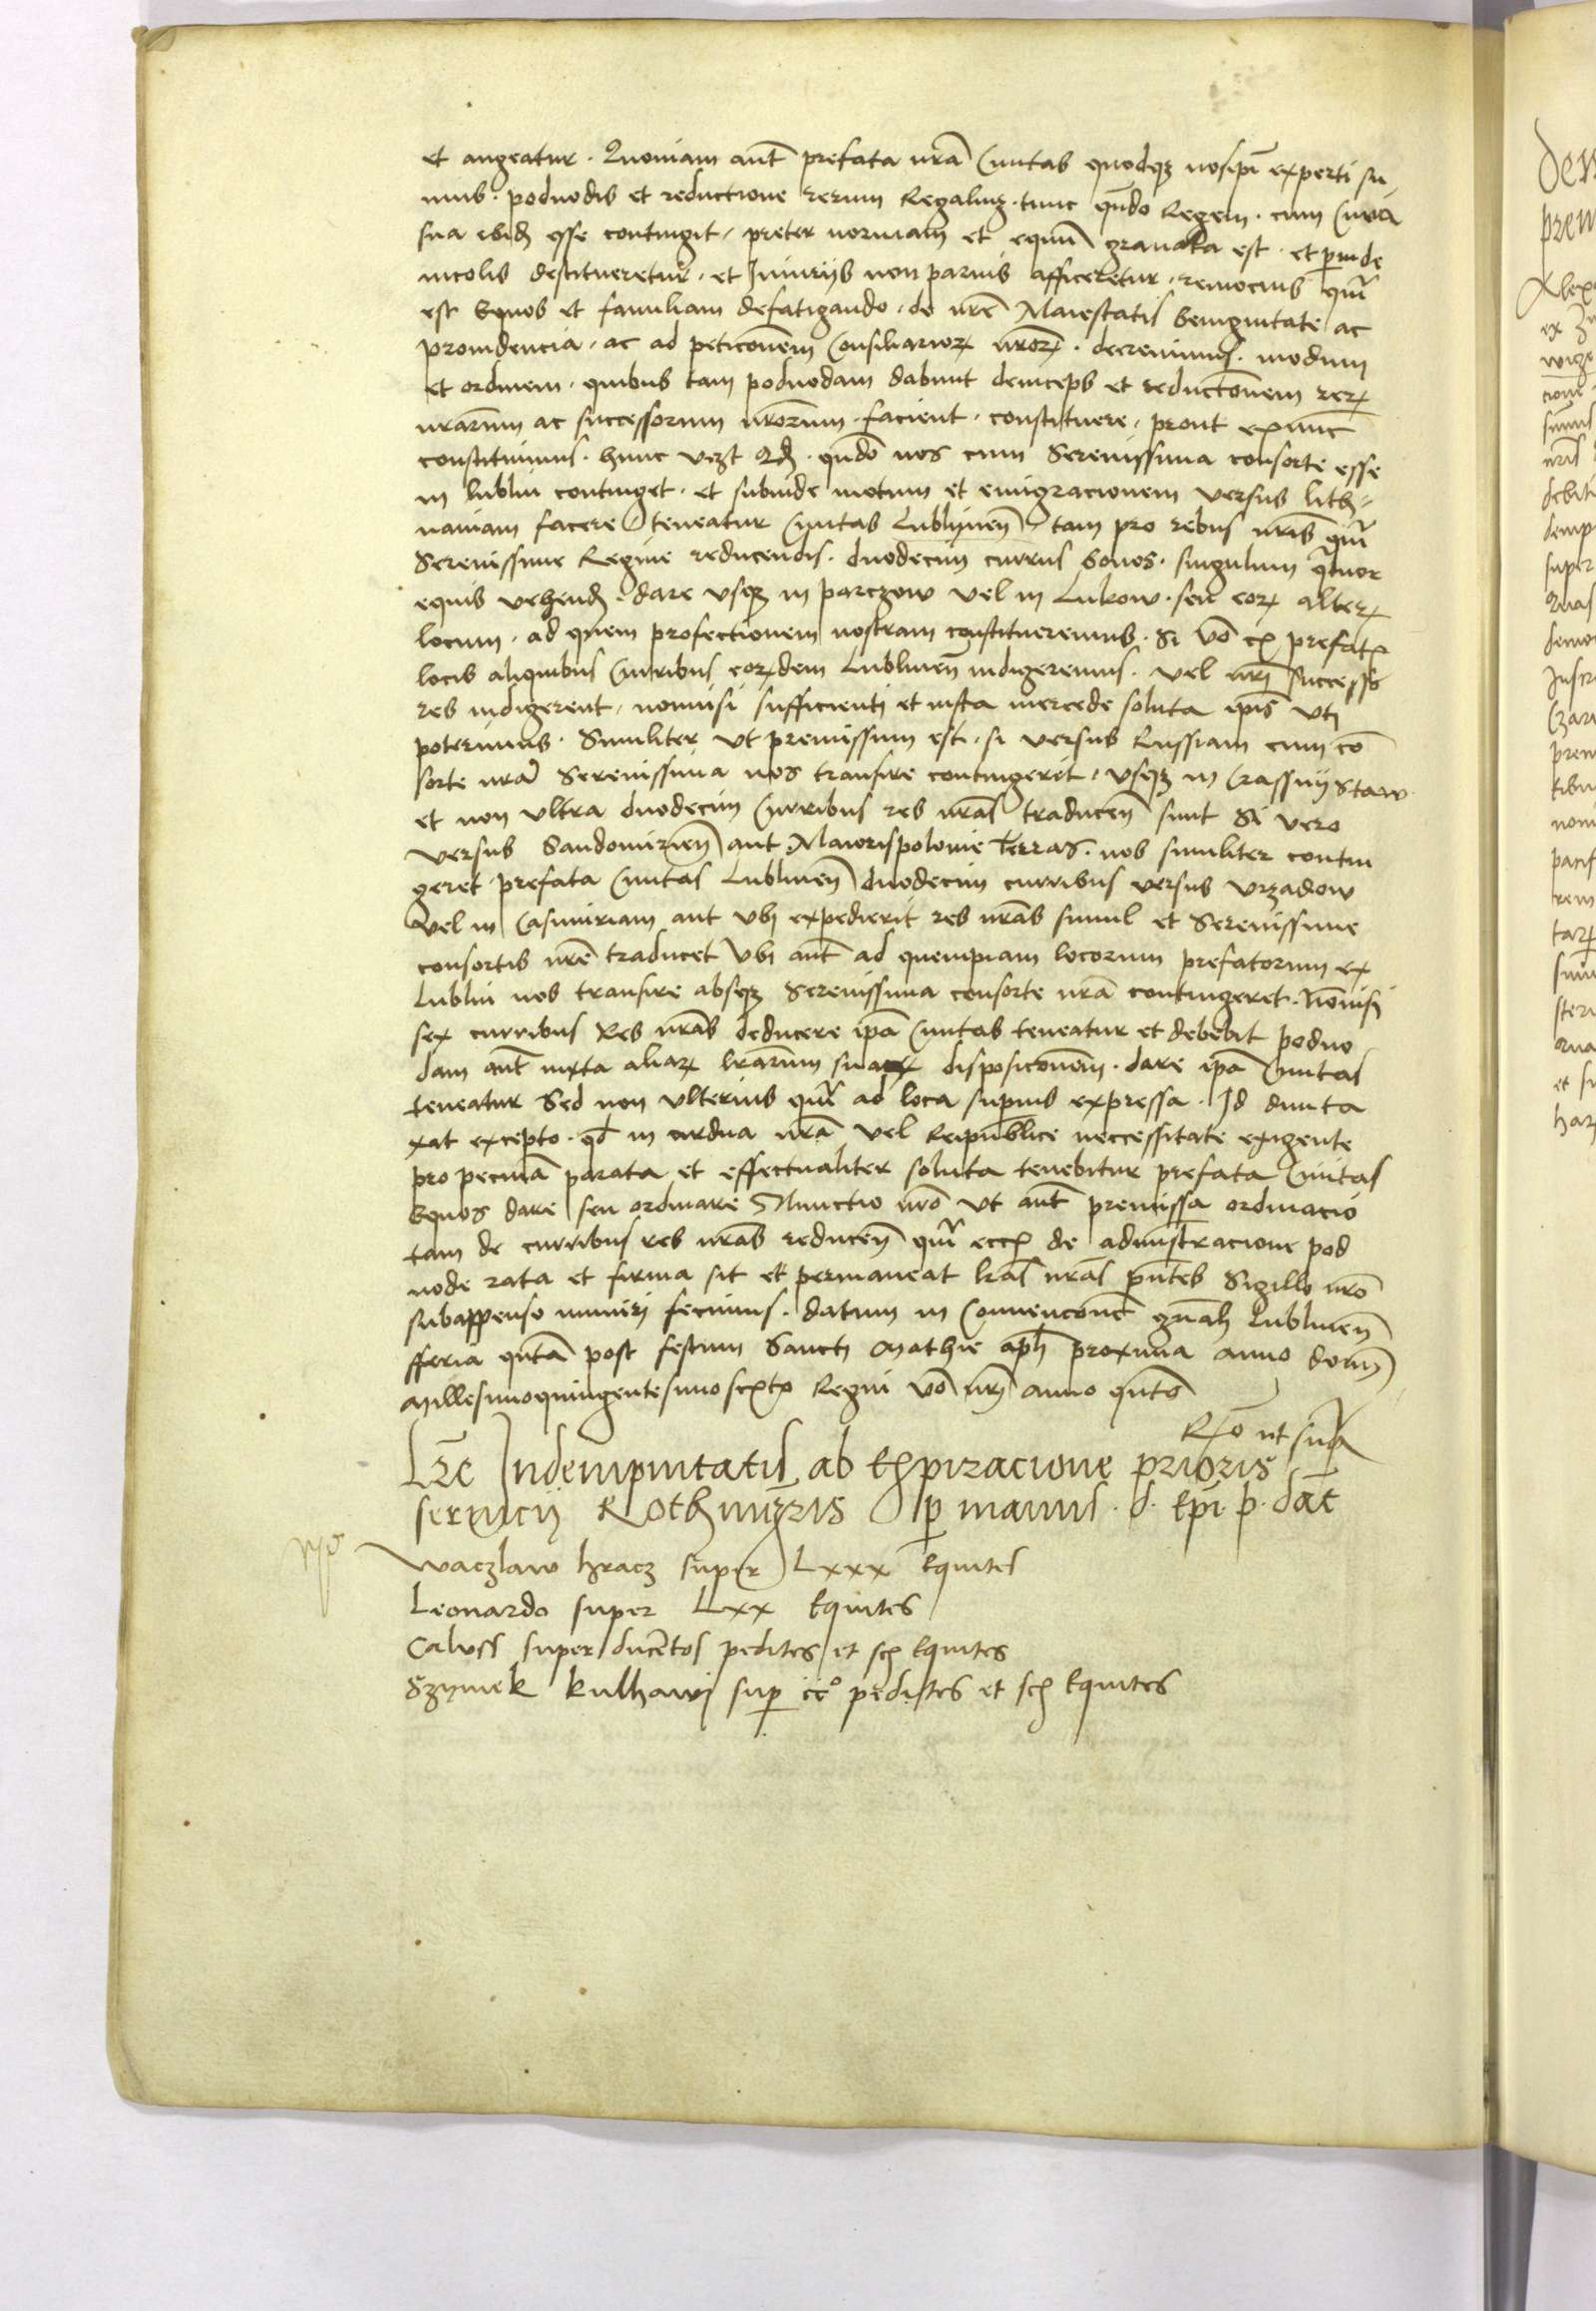 et augeatur. Quoniam aut̄ prefata nr̄a Ciuitas quodqꝫ nosip̄i experti su-
mus. poduodis et reductione rerum Regaliuꝫ. tunc qn̄do Regem. cum Curia
sua ibid̄ esse contingit, preter normam et equū grauata est. et ꝑinde
incolis destitueretur. et Iniurijs non paruis afficeretur. remocius qm̄
est Equos et familiam defatigando. de nr̄e Maiestatis benignitate ac
prouidencia, ac ad peticōnem Consiliarioꝝ nr̄oꝝ. decreuimus. modum
et ordinem. quibus tam poduodam dabunt deinceps et reductōnem rerꝝ
nr̄arum ac successorum nr̄orum. facient. constituere, prout exnunc
constituimus. hunc vꝫt Qd̄. qn̄do nos cum Serenissima consorte esse
in lublin continget. et subinde motum et emigracionem versus lith-
uaniam facere teneatur Ciuitas Lublinen̄. tam pro rebus nr̄is qm̄
Serenissime Regine reducendis. duodecim currus bonos. singulum q̄tuor
equis vehend̄. dare vsqꝫ in parczow vel in Lukow. seu eoꝝ alterꝝ
locum. ad quem profectionem nostram constitueremus. Si vō ex prefatꝭ
locis aliquibus Curribus eoꝝdem Lublinen̄ indigeremus. vel nr̄i successo
res indigerent, nonnisi sufficienti et iusta mercede soluta ip̄is vti
poterimus. Similiter vt premissum est. si versus Russiam cum cō
sorte nr̄a Serenissima nos transire contingerit, vsqꝫ in Crassnijstaw
et non vltra duodecim Curribus res nr̄as traducen̄ sunt Si vero
versus Sandomirien̄ aut Maiorispolonie terras. nos similiter contin
geret prefata Ciuitas Lublinen̄ duodecim curribus versus vrzadow
vel in Casimiriam aut vbi expedierit res nr̄as simul et Serenissime
consortis nr̄e traducet Vbi aut̄ ad quempiam locorum prefatorum ex
Lublin nos transire absqꝫ Serenissima consorte nr̄a contingeret. Nonnisi
sex curribus Res nr̄as deducere ip̄a Ciuitas teneatur et debebit poduo
dam aut̄ iuxta aliaꝝ lr̄arum suaꝝ disposicōnem. dare ip̄a Ciuitas
teneatur Sed non vlterius qm̄ ad loca supius expressa. Id dunta
xat excepto. qd̄ in ardua nr̄a vel Reipublice neccessitate exigente
pro pecunia parata et effectualiter soluta tenebitur prefata Ciuitas
Equos dare seu ordinare Nunctio nr̄o Vt aut̄ premissa ordinacio
tam de curribus res nr̄as reducen̄ qm̄ ecꝭ de administracione pod
uode rata et firma sit et permaneat lr̄as nr̄as p̄ntes Sigillo nr̄o
subappenso muniri fecimus. datum in Conuencōne gn̄ali Lublinen̄
fferia qn̄ta post festum Sancti Mathie apl̄i proxima anno domī
Millesimoquingentesimosexto Regni vō nr̄i anno qn̄to
Rō ut supra
Lr̄e Indempnitatis ab Expiracione prioris
seruicij Rothmꝫris ꝑ manus. d. Epi. p. dat̄
Waczlaw hracz super Lxxx Equites
Leonardo super Lxx Equites
Caluss super ducentos pedites et sex Equites
Szymek kulhawi sup ccº pedistes et sex Equites